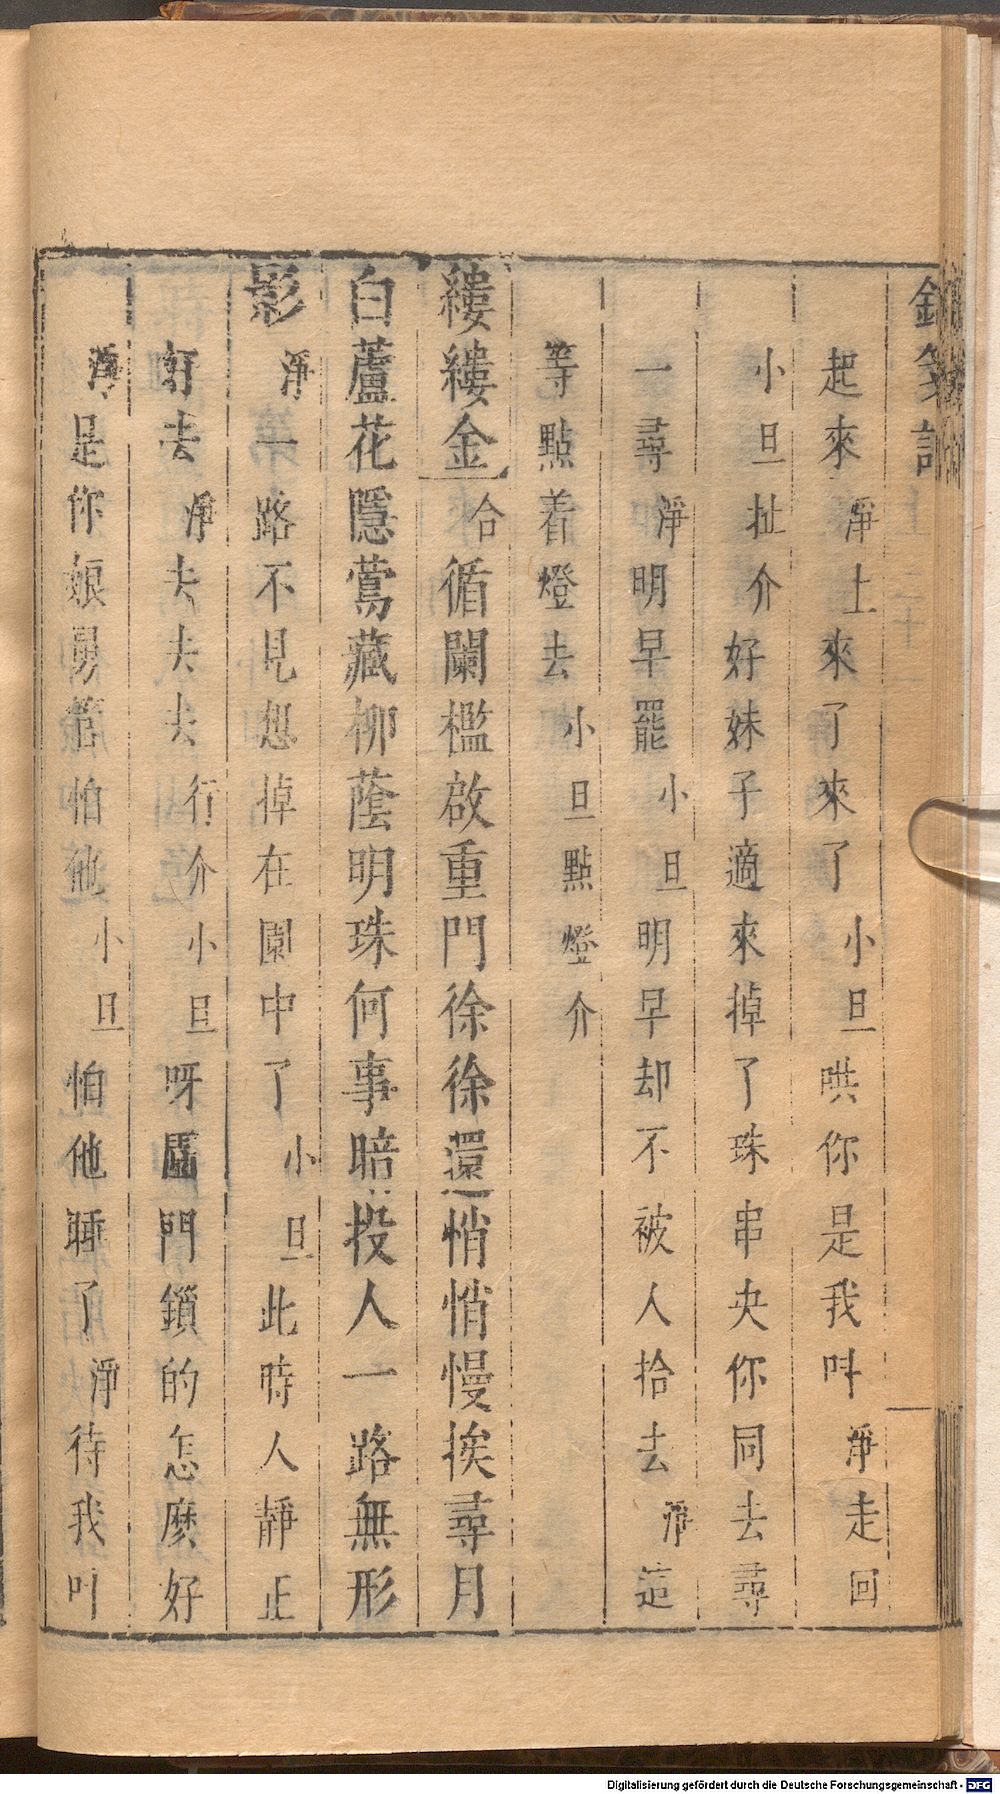 起來淨上來了來了小旦哄你是我呌淨走回
小旦扯介好妹子適來掉了珠串央你同去尋
一尋淨明早罷小旦明早却不被人拾去淨這
等點着燈去小旦點燈介
縷縷金合循闌檻啟重門徐徐還悄悄慢挨尋月
白蘆花隱鶯藏柳蔭明珠何事暗投人一路無形
影淨一路不見想掉在園中了小旦此時人靜正
好去淨去去去行介小旦呀園門鎖的怎麽好
淨是你娘舅管怕他小旦怕他睡了淨待我叫
Digitalisierung gefördert durch die Deutsche Forschungsgemeinschaft - DFG